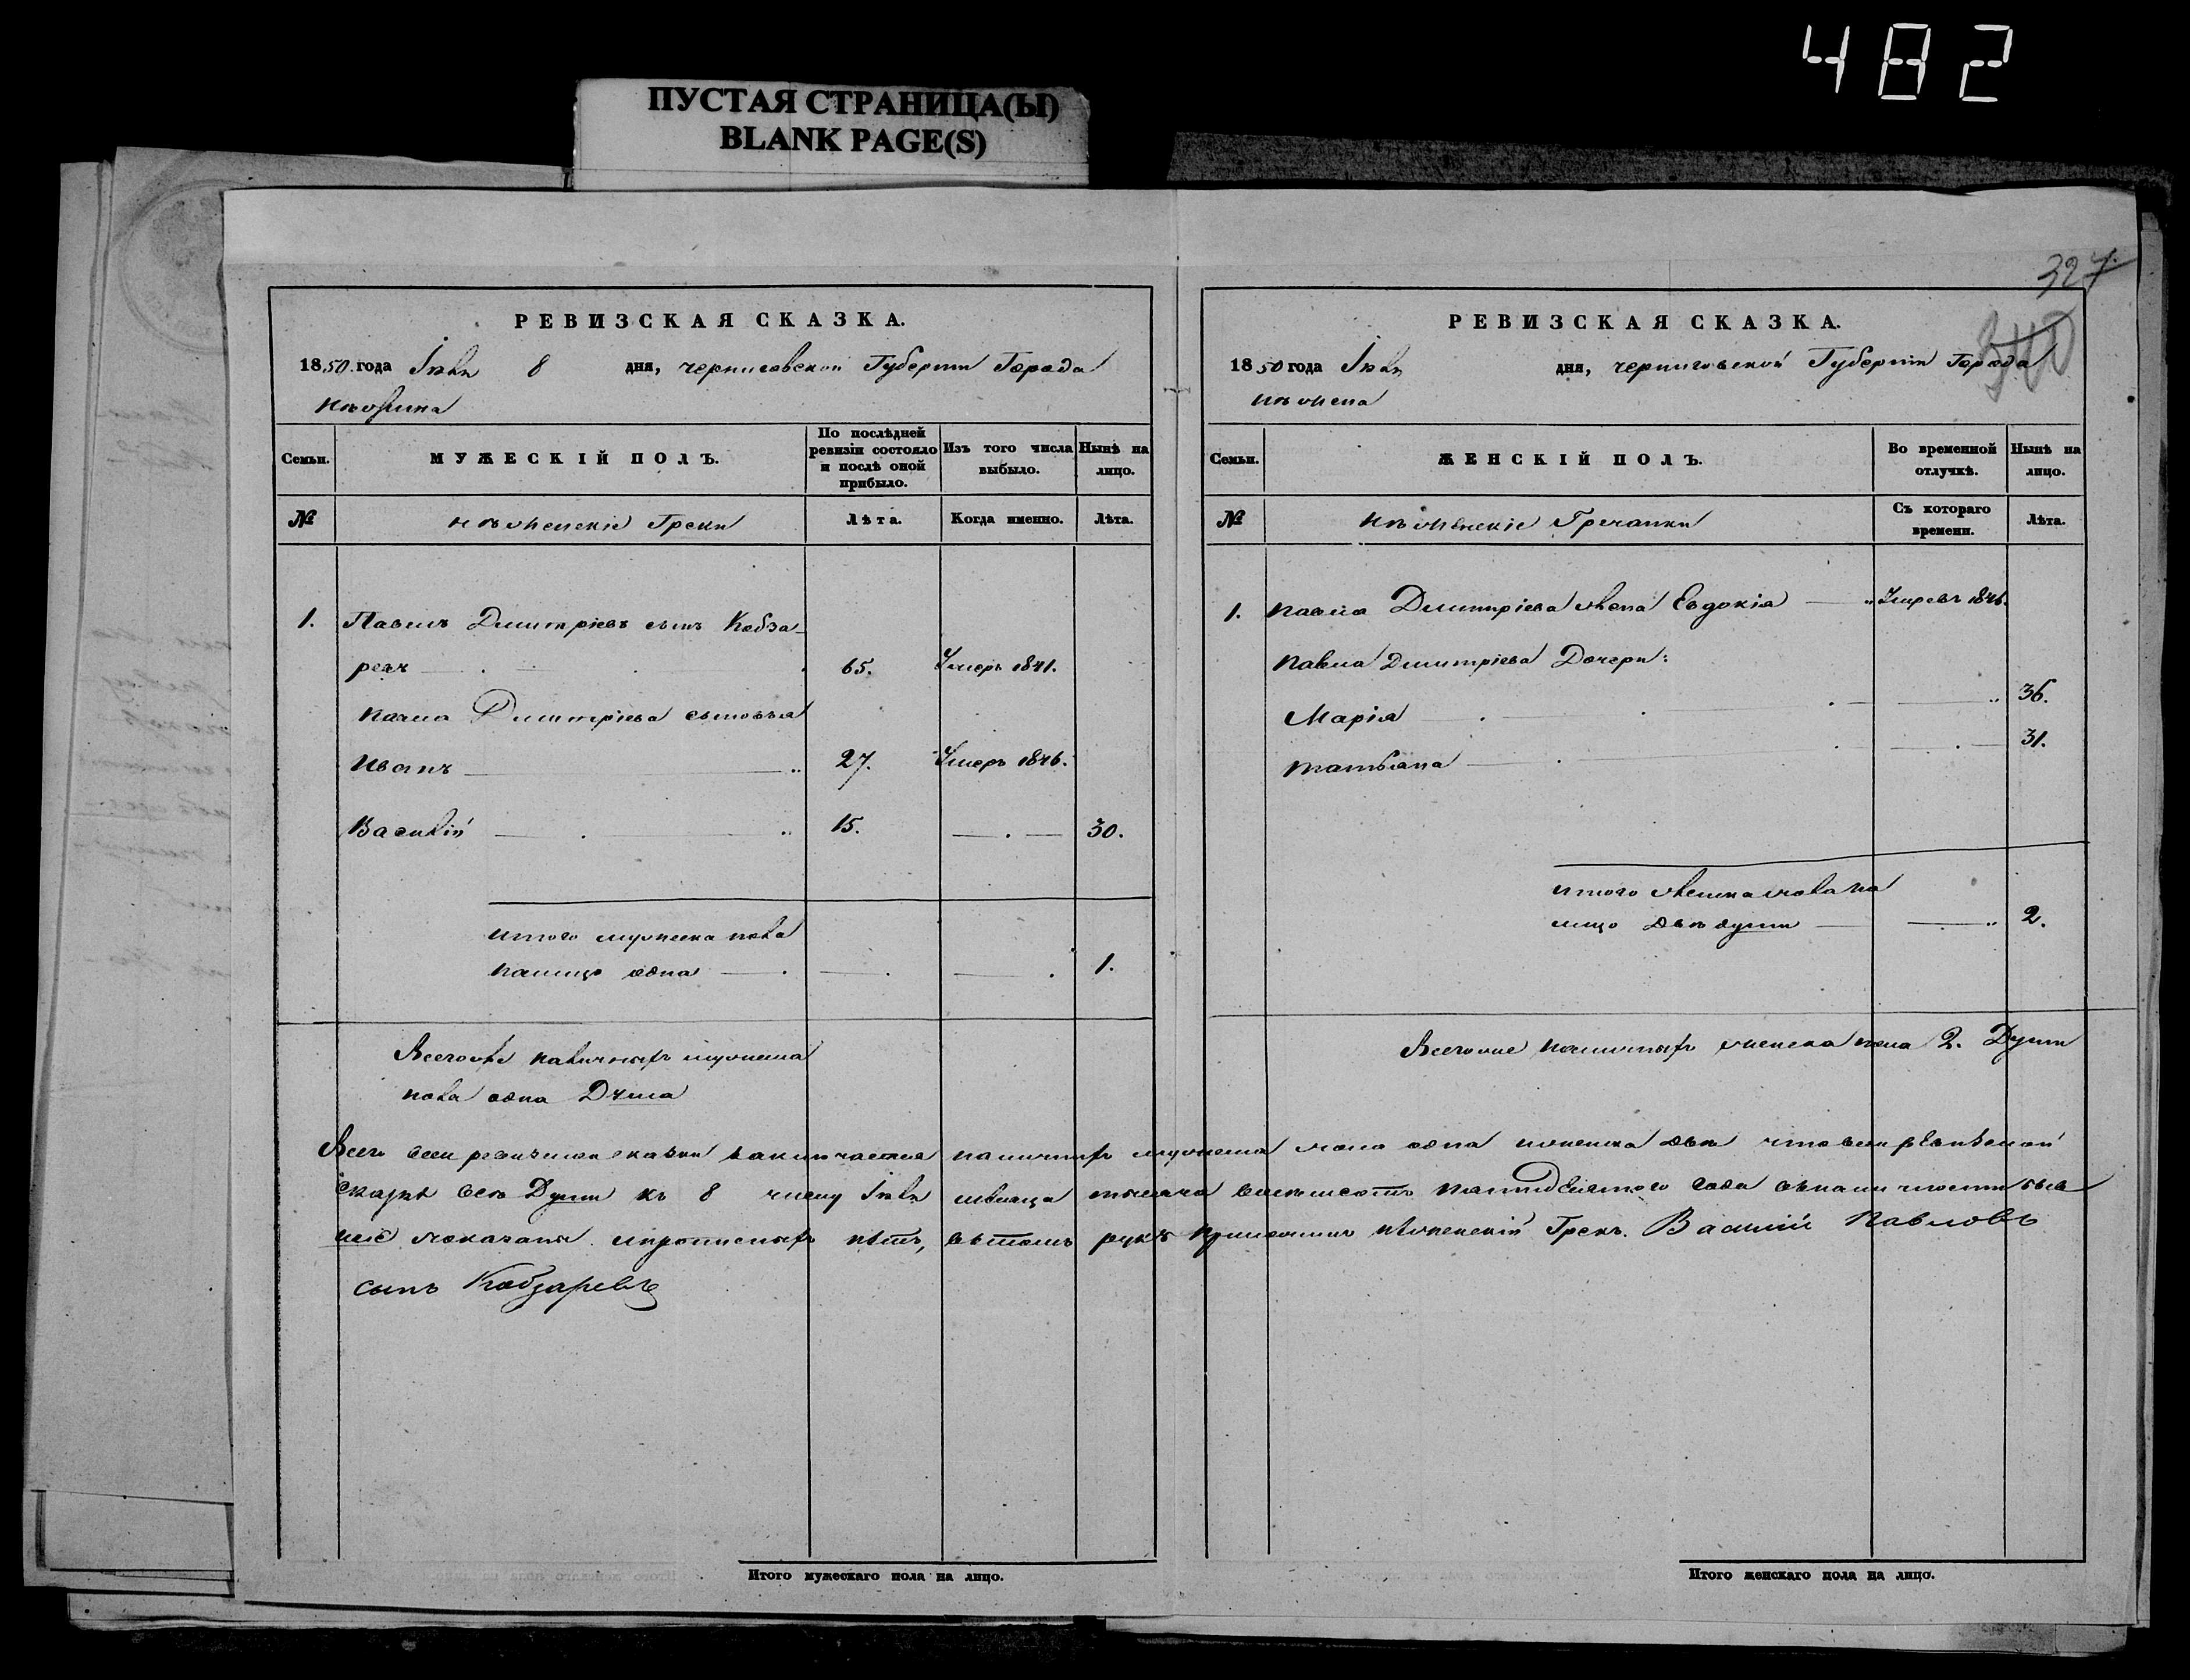 482
ПУСТАЯ СТРАНИЦА(Ы)
BLANK PAGE(S)
РЕВИЗСКАЯ СКАЗКА.
1850. года Іюля 8 дня, Черниговской Губерніи Города
Нѣжина
Семьи.
МУЖЕСКІЙ ПОЛЪ.
По послѣдней ревизіи состояло и послѣ оной прибыло.
Изъ того числа выбыло.
Нынѣ на лицо.
№
Нѣженскіе Греки
Лѣта.
Когда именно.
Лѣта.
1. Павелъ Димитріевъ сынъ Кобза-
ревъ 65. Умеръ 1841.
Павла Димитріева сыновья
Иванъ 27. Умеръ 1846.
Василій 15. 30.
Итого мужеска пола
налицо одна 1.
Всего же наличныхъ мужеска
пола одна Душа
327
340
РЕВИЗСКАЯ СКАЗКА.
1850 года Іюля дня, Черниговской Губерніи Города
Нѣжена
Семьи.
ЖЕНСКІЙ ПОЛЪ.
Во временной отлучкѣ.
Нынѣ на лицо.
№
Нѣженскіе Гречанки
Съ котораго времени.
Лѣта.
1. Павла Димитріева жена Евдокія
Павла Димитріева Дочери:
Марія 36.
Татьяна 31.
Итого женска пола на
лицо двѣ души 2.
Всего же наличныхъ женска пола 2. Души
Всего въ сей ревизской сказки заключается наличныхъ мужеска пола одна и женска двѣ что въ сей ревизской
сказкѣ всѣ Души къ 8 числу Іюля мѣсяца тысяча восемьсотъ пятидесятого года въ наличности быв
шіе показаны и прописныхъ нѣтъ, въ томъ руку приложилъ нѣженскій Грекъ. Василій Павловъ
сынъ Кобзаревъ
Итого мужескаго пола на лицо.
Итого женскаго пола на лицо.